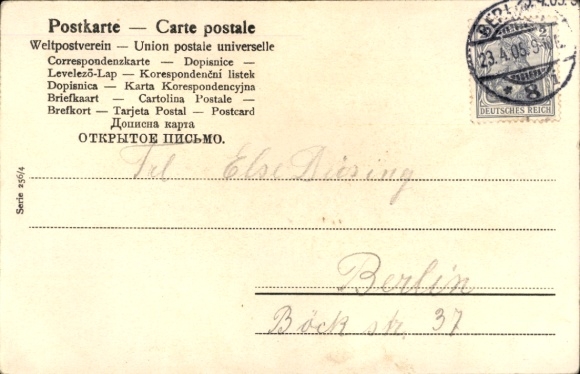 Postkarte — Carte postale
Weltpostverein — Union postale universelle
Correspondenzkarte — Dopisnice —
Levelező-Lap — Korespondenční listek
Dopisnica — Karta Korespondencyjna
Briefkaart — Cartolina Postale —
Brefkort — Tarjeta Postal — Postcard
Дописна карта
ОТКРЫТОЕ ПИСЬМО.
BERLIN
23.4.05.9-10
* 8
2
DEUTSCHES REICH
Else
Berlin
Böck str. 37
Serie 256/4